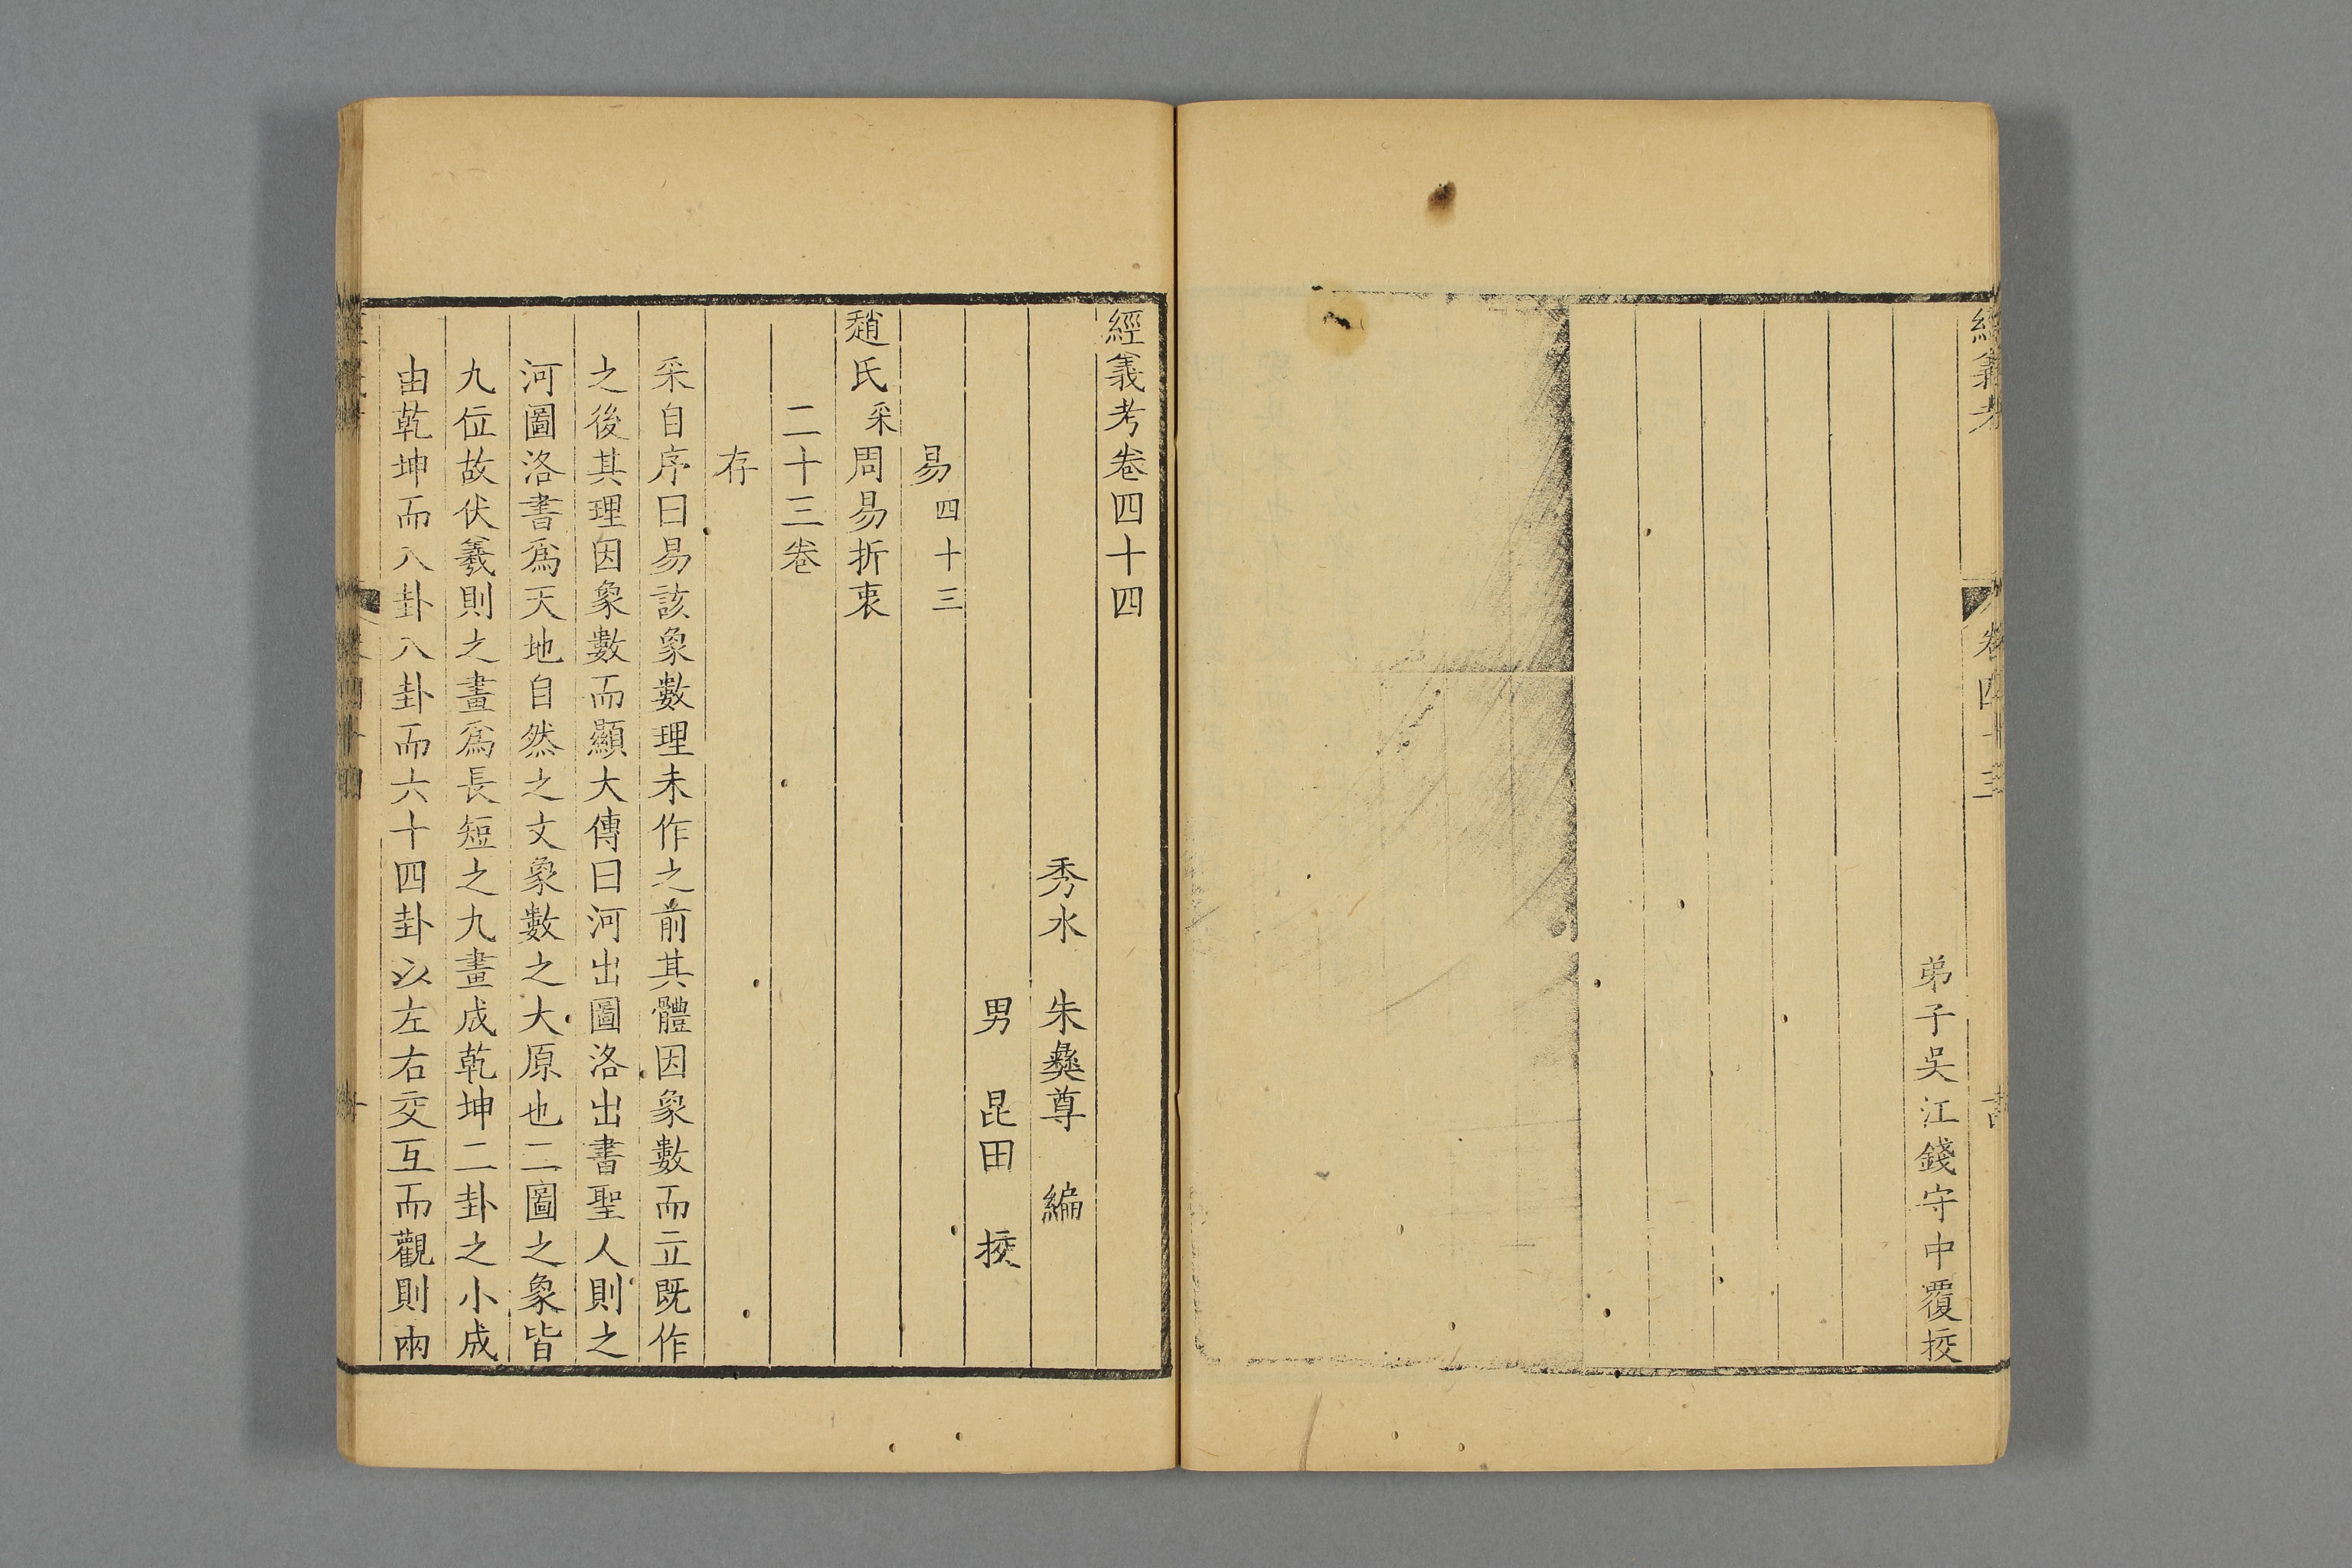 經義考
卷四十三
弟子吳江錢守中覆挍
經義考卷四十四
秀水 朱彝尊 編
男 昆田 挍
易四十三
趙氏采周易折衷
二十三卷
存
采自序曰易該象數理未作之前其體因象數而立既作
之後其理因象數而顯大傳曰河出圖洛出書聖人則之
河圖洛書爲天地自然之文象數之大原也二圖之象皆
九位故伏羲則之畫爲長短之九畫成乾坤二卦之小成
由乾坤而八卦八卦而六十四卦以左右交互而觀則兩